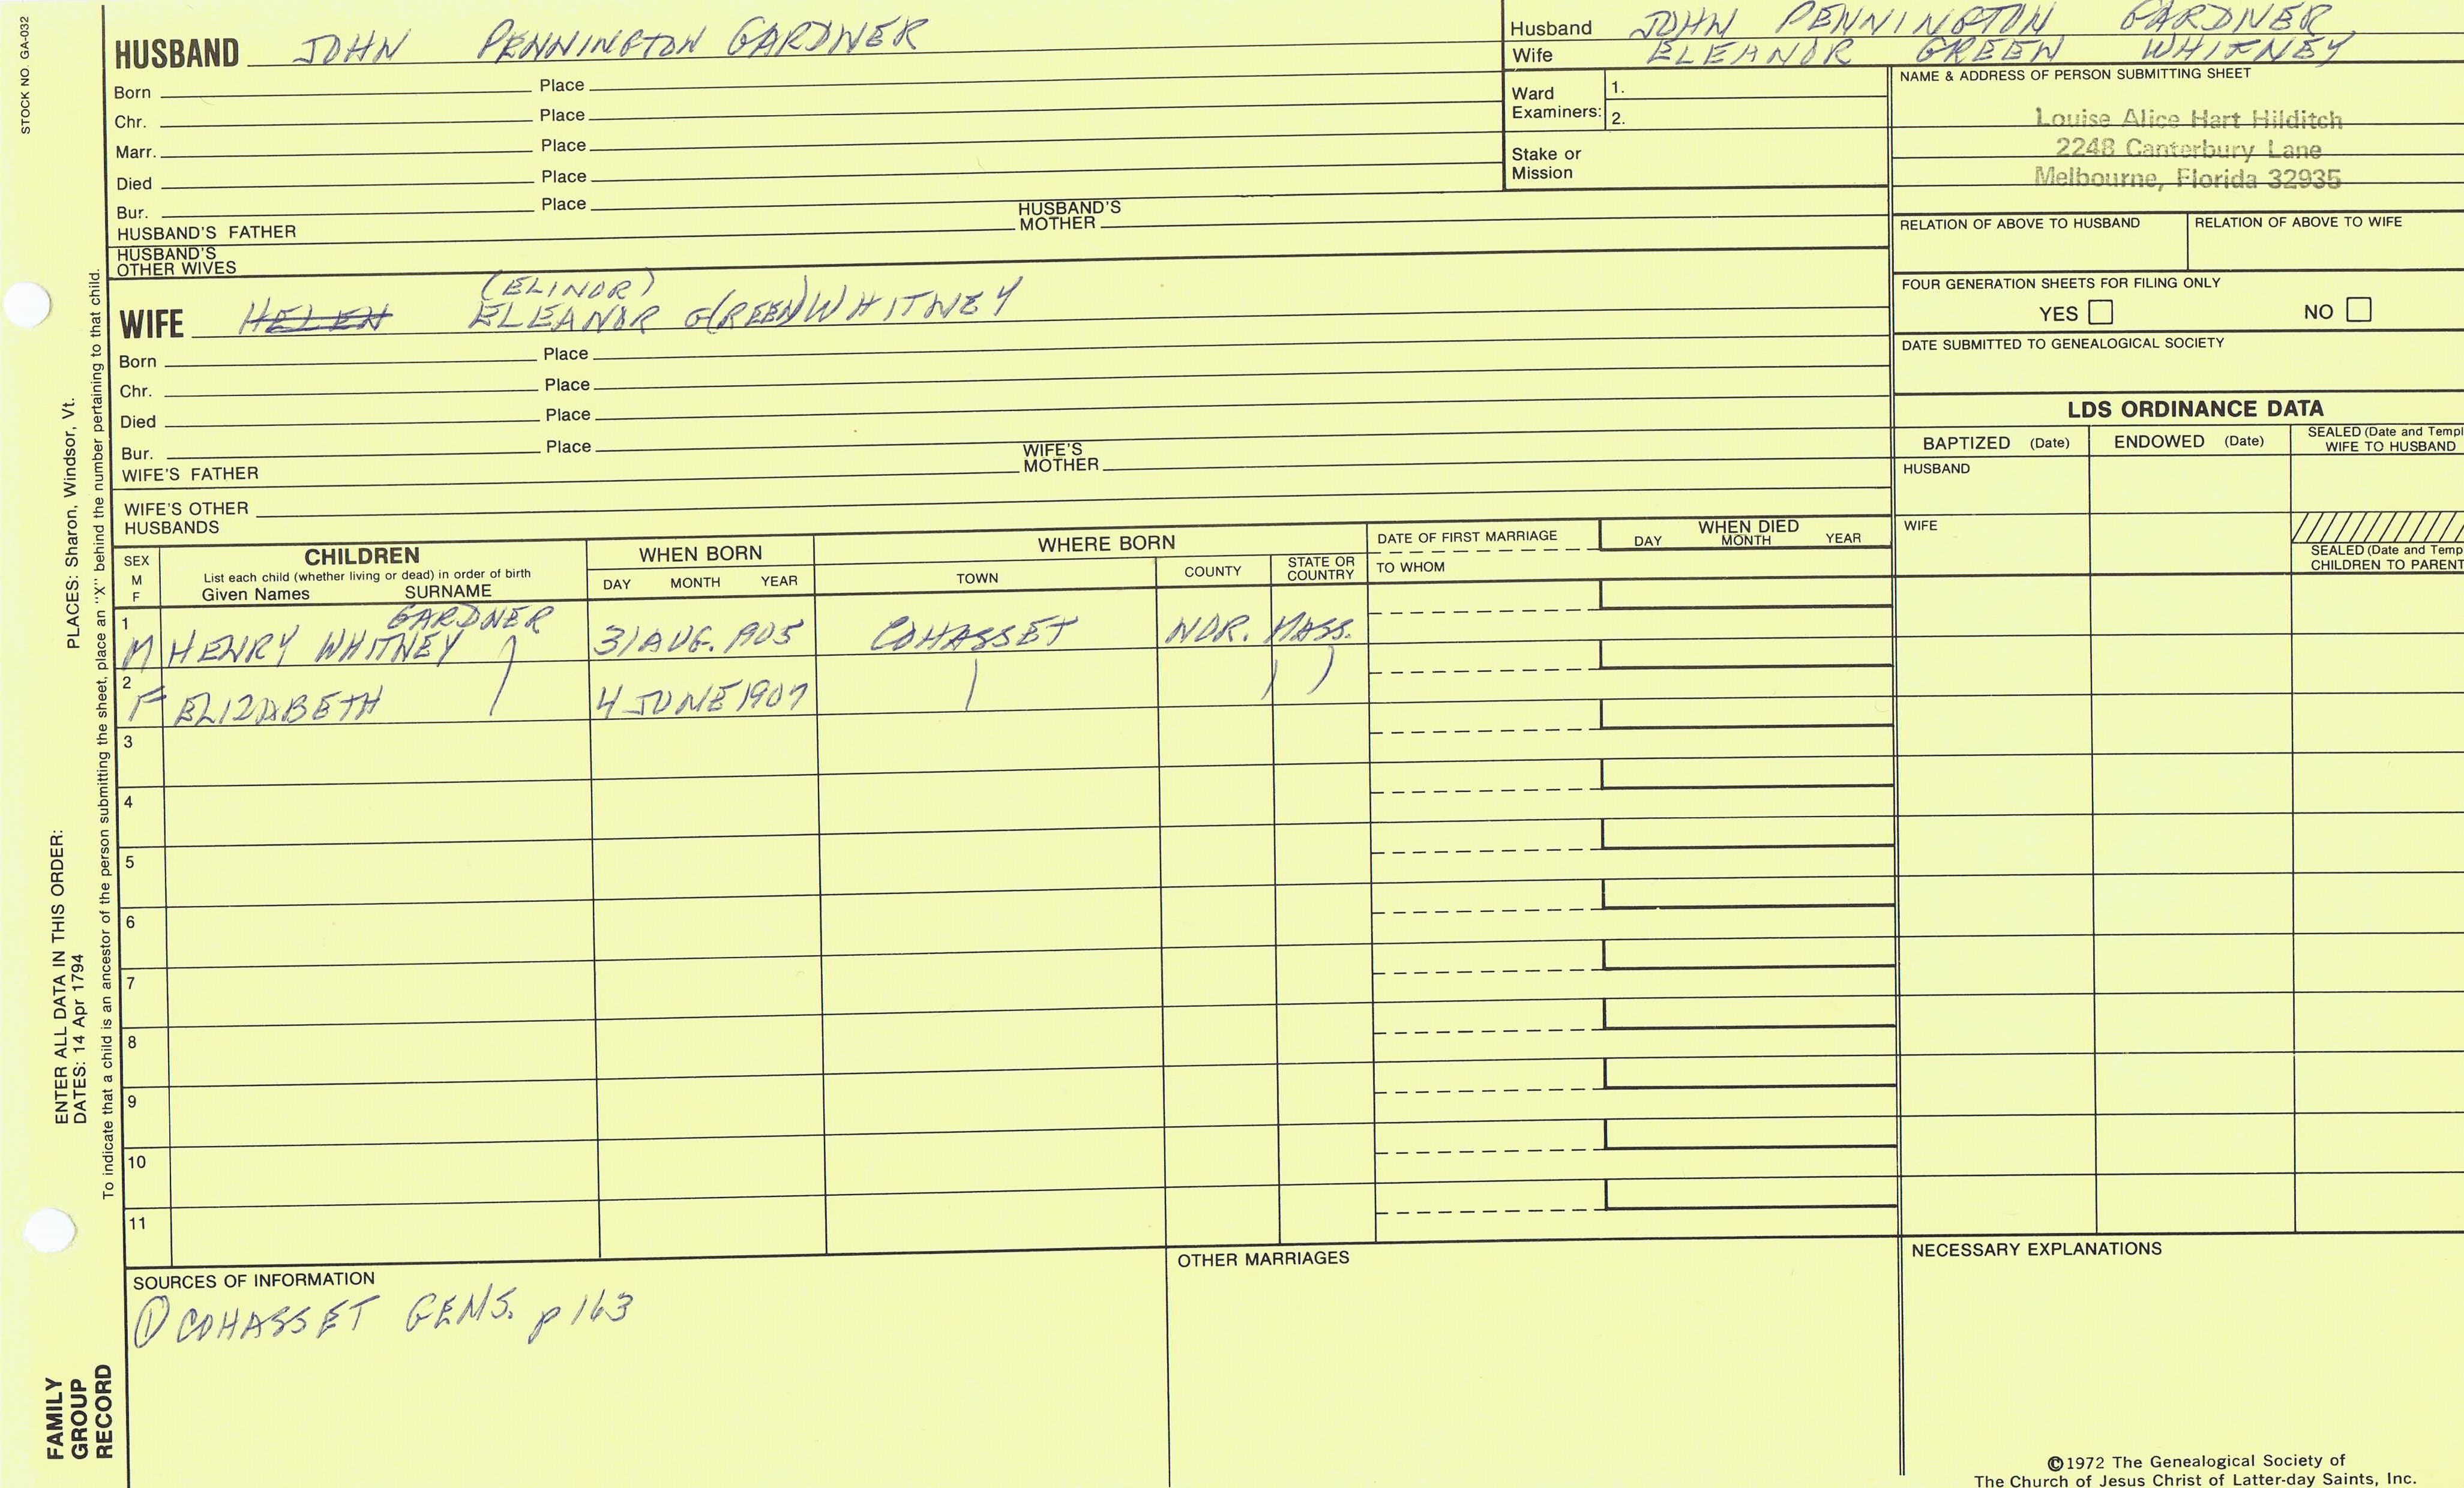 STOCK NO. GA-032
HUSBAND JOHN PENNINGTON GARDNER
Born Place
Chr. Place
Marr. Place
Died Place
Bur. Place
HUSBAND'S FATHER HUSBAND'S MOTHER
HUSBAND'S OTHER WIVES
(ELINOR)
WIFE HELEN ELEANOR G(REEN) WHITNEY
Born Place
Chr. Place
Died Place
Bur. Place
WIFE'S FATHER WIFE'S MOTHER
WIFE'S OTHER HUSBANDS
Husband JOHN PENNINGTON GARDNER
Wife ELEANOR GREEN WHITNEY
Ward Examiners: 1.
2.
Stake or Mission
NAME & ADDRESS OF PERSON SUBMITTING SHEET
Louise Alice Hart Hilditch
2248 Canterbury Lane
Melbourne, Florida 32935
RELATION OF ABOVE TO HUSBAND RELATION OF ABOVE TO WIFE
FOUR GENERATION SHEETS FOR FILING ONLY
YES NO
DATE SUBMITTED TO GENEALOGICAL SOCIETY
LDS ORDINANCE DATA
BAPTIZED (Date) ENDOWED (Date) SEALED (Date and Templ
WIFE TO HUSBAND
HUSBAND
WIFE
SEALED (Date and Temp
CHILDREN TO PARENT
SEX M F
CHILDREN
List each child (whether living or dead) in order of birth
Given Names SURNAME
WHEN BORN
DAY MONTH YEAR
WHERE BORN
TOWN COUNTY STATE OR COUNTRY
DATE OF FIRST MARRIAGE
TO WHOM
WHEN DIED
DAY MONTH YEAR
GARDNER
1 M HENRY WHITNEY 31 AUG. 1905 COHASSET NOR. MASS.
2 F ELIZABETH 4 JUNE 1907
3
4
5
6
7
8
9
10
11
SOURCES OF INFORMATION
① COHASSET GENS. p 163
OTHER MARRIAGES
NECESSARY EXPLANATIONS
©1972 The Genealogical Society of
The Church of Jesus Christ of Latter-day Saints, Inc.
FAMILY
GROUP
RECORD
ENTER ALL DATA IN THIS ORDER:
DATES: 14 Apr 1794
PLACES: Sharon, Windsor, Vt.
To indicate that a child is an ancestor of the person submitting the sheet, place an "X" behind the number pertaining to that child.